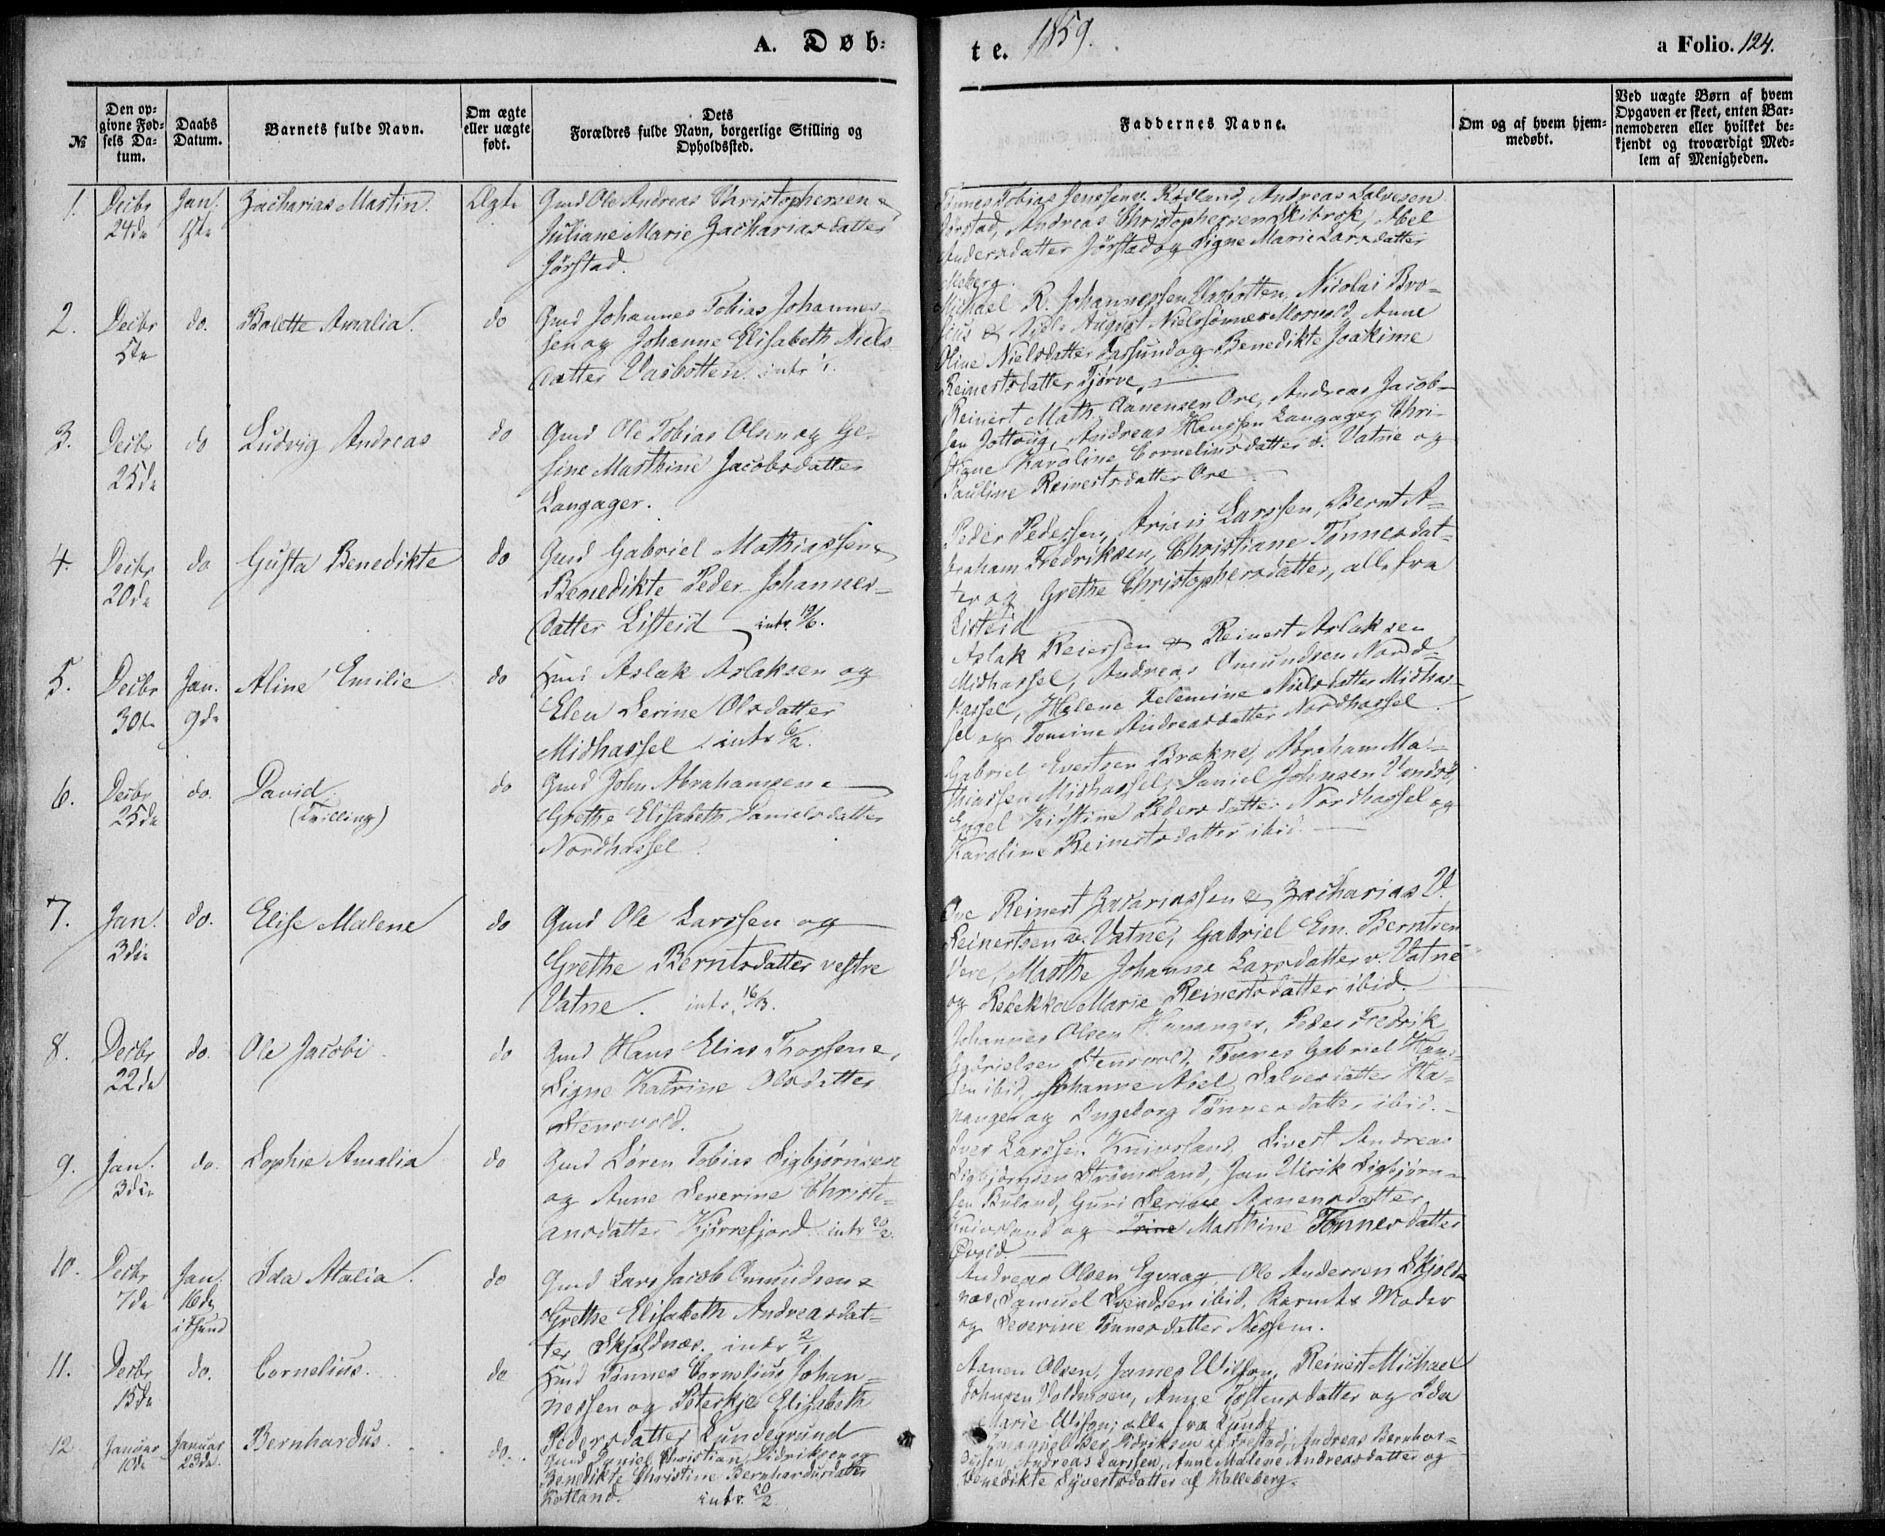 A. Døb=
te. 1859.
a Folio. 124.
№
Den op=
givne Fød=
sels Da=
tum.
Daabs
Datum.
Barnets fulde Navn.
Om ægte
eller uægte
født.
Dets
Forældres fulde Navn, borgerlige Stilling og
Opholdssted.
Faddernes Navne.
Om og af hvem hjem=
medøbt.
Ved uægte Børn af hvem
Opgaven er skeet, enten Bar=
nemoderen eller hvilket be=
kjendt og troværdigt Med=
lem af Menigheden.
1.
Decbr
24de
Jan.
1ste
Zacharias Martin.
Ægte
Gmd Ole Andreas Christophersen &
Juliane Marie Zachariasdatter
Jørstad.
Tønnes Tobias Jenssen Rødland, Andreas Salvesen
Jørstad, Andreas Christophersen Skibrok, Abel
Andersdatter Jørstad og Signe Marie Larsdatter
2.
Decbr
5te
do.
Balette Amalia.
do
Gmd Johannes Tobias Johannes=
sen og Johanne Elisabeth Niels=
datter Vasbotten. intr
Michael R. Johannessen Vasbotten, Nicolai Bro=
& Niels August Nielssønner Mornold, Anne
Oline Nielsdatter og Benedikte Joakime
Reinertsdatter Tjørve.
3.
Decbr
25de
do
Ludvig Andreas
do
Gmd Ole Tobias Olsen og Ge=
sine Marthine Jacobsdatter
Langager.
Reinert Math. Aanensen Ore, Andreas Jacob=
sen Jottoug, Andreas Hanssen Langager, Chri=
stiane Karoline Corneliusdatter v. Vatne og
Pauline Reinertsdatter Ore
4.
Decbr
20de
do
Gusta Benedikte
do
Gmd Gabriel Mathiassen &
Benedikte Peder Johannes=
datter Listeid intr.
Peder Pedersen, Larssen, Bernt A=
braham Fredriksen, Christiane Tønnesdat=
ter og Grethe Christophersdatter, alle fra
Listeid
5.
Decbr
30te
Jan.
9de
Aline Emilie
do
Aslak Aslaksen og
Elen Serine Olsdatter
Midhassel. intr 6/2.
Aslak Reiersen & Reinert Aslaksen
Midhassel, Andreas Omundsen Nord=
hassel, Helene Telemine Nielsdatter Midhas=
sel og Tomine Andreasdatter Nordhassel
6.
Decbr
25de
do.
David
(Tvilling)
do
Gmd John Abrahamsen &
Grethe Elisabeth Danielsdatter
Nordhassel.
Gabriel Evertsen Brækne, Abraham Ma=
thiassen Midhassel, Daniel Johnsen
Engel Kirstine Pedersdatter Nordhassel og
Karoline Reinertsdatter ibid.
7.
Jan.
3die
do.
Elise Malene
do
Gmd Ole Larssen og
Grethe Berntsdatter vestre
Vatne. intr. 16/3.
Ove Reinert Zakariassen & Zacharias U.
Reinertsen v. Vatne, Gabriel Em. Berntsen
Marthe Johanne Larsdatter v. Vatne
og Rebekka Marie Reinertsdatter ibid.
8.
Decbr
22de
do.
Ole Jacobi
do
Gmd Hans Elias Thorssen &
Signe Katrine Olsdatter
Stensvold.
Johannes Olsen Hananger, Peder Fredrik
Gabrielsen Stensvold, Tønnes Gabriel Han=
sen ibid, Johanne Abel Salvesdatter Ha=
nanger og Ingeborg Tønnesdatter ibid.
9.
Jan.
3die
do.
Sophie Amalia
do
Gmd Søren Tobias Sigbjørnsen
og Anne Severine Christi=
ansdatter Kjørrefjord intr 20/2.
Iver Larssen Knivsland, Sivert Andreas
Sigbjørnsen Strømsland, Jan Ulrik Sigbjørn=
sen Buland, Guri Serine Aanensdatter
Knivsland og Trine Marthine Tønnesdatter
10.
Decbr
7de
Jan.
16de
i
Ida Atalia.
do
Gmd Lars Jacob Omundsen &
Grethe Elisabeth Andreasdat=
ter Skjoldnæs. intr 2/1
Andreas Olsen Egvaag, Ole Andersen Skjold=
næs, Samuel Svendsen ibid, Barnets Moder
og Severine Tønnesdatter Nessem.
11.
Decbr
15de
do.
Cornelius.
do
Tønnes Cornelius Johan=
nessen og Peterkje Elisabeth
Pedersdatter Lundegrund
Aanen Olsen, James Wilson, Reinert Michael
Johnsen, Anne Tostensdatter og Ida
Marie Wilson; alle fra Lunde
12
Januar
10de
Januar
23de
Bernhardus.
do.
Gmd Daniel Christian Didriksen og
Benedikte Christine Bernhardusdatter
Kotland. intr. 20/2
Didriksen af Andreas Bernhar=
dussen, Andreas Larssen, Anne Malene Andreasdatter og
Benedikte Syvertsdatter af Kalleberg.